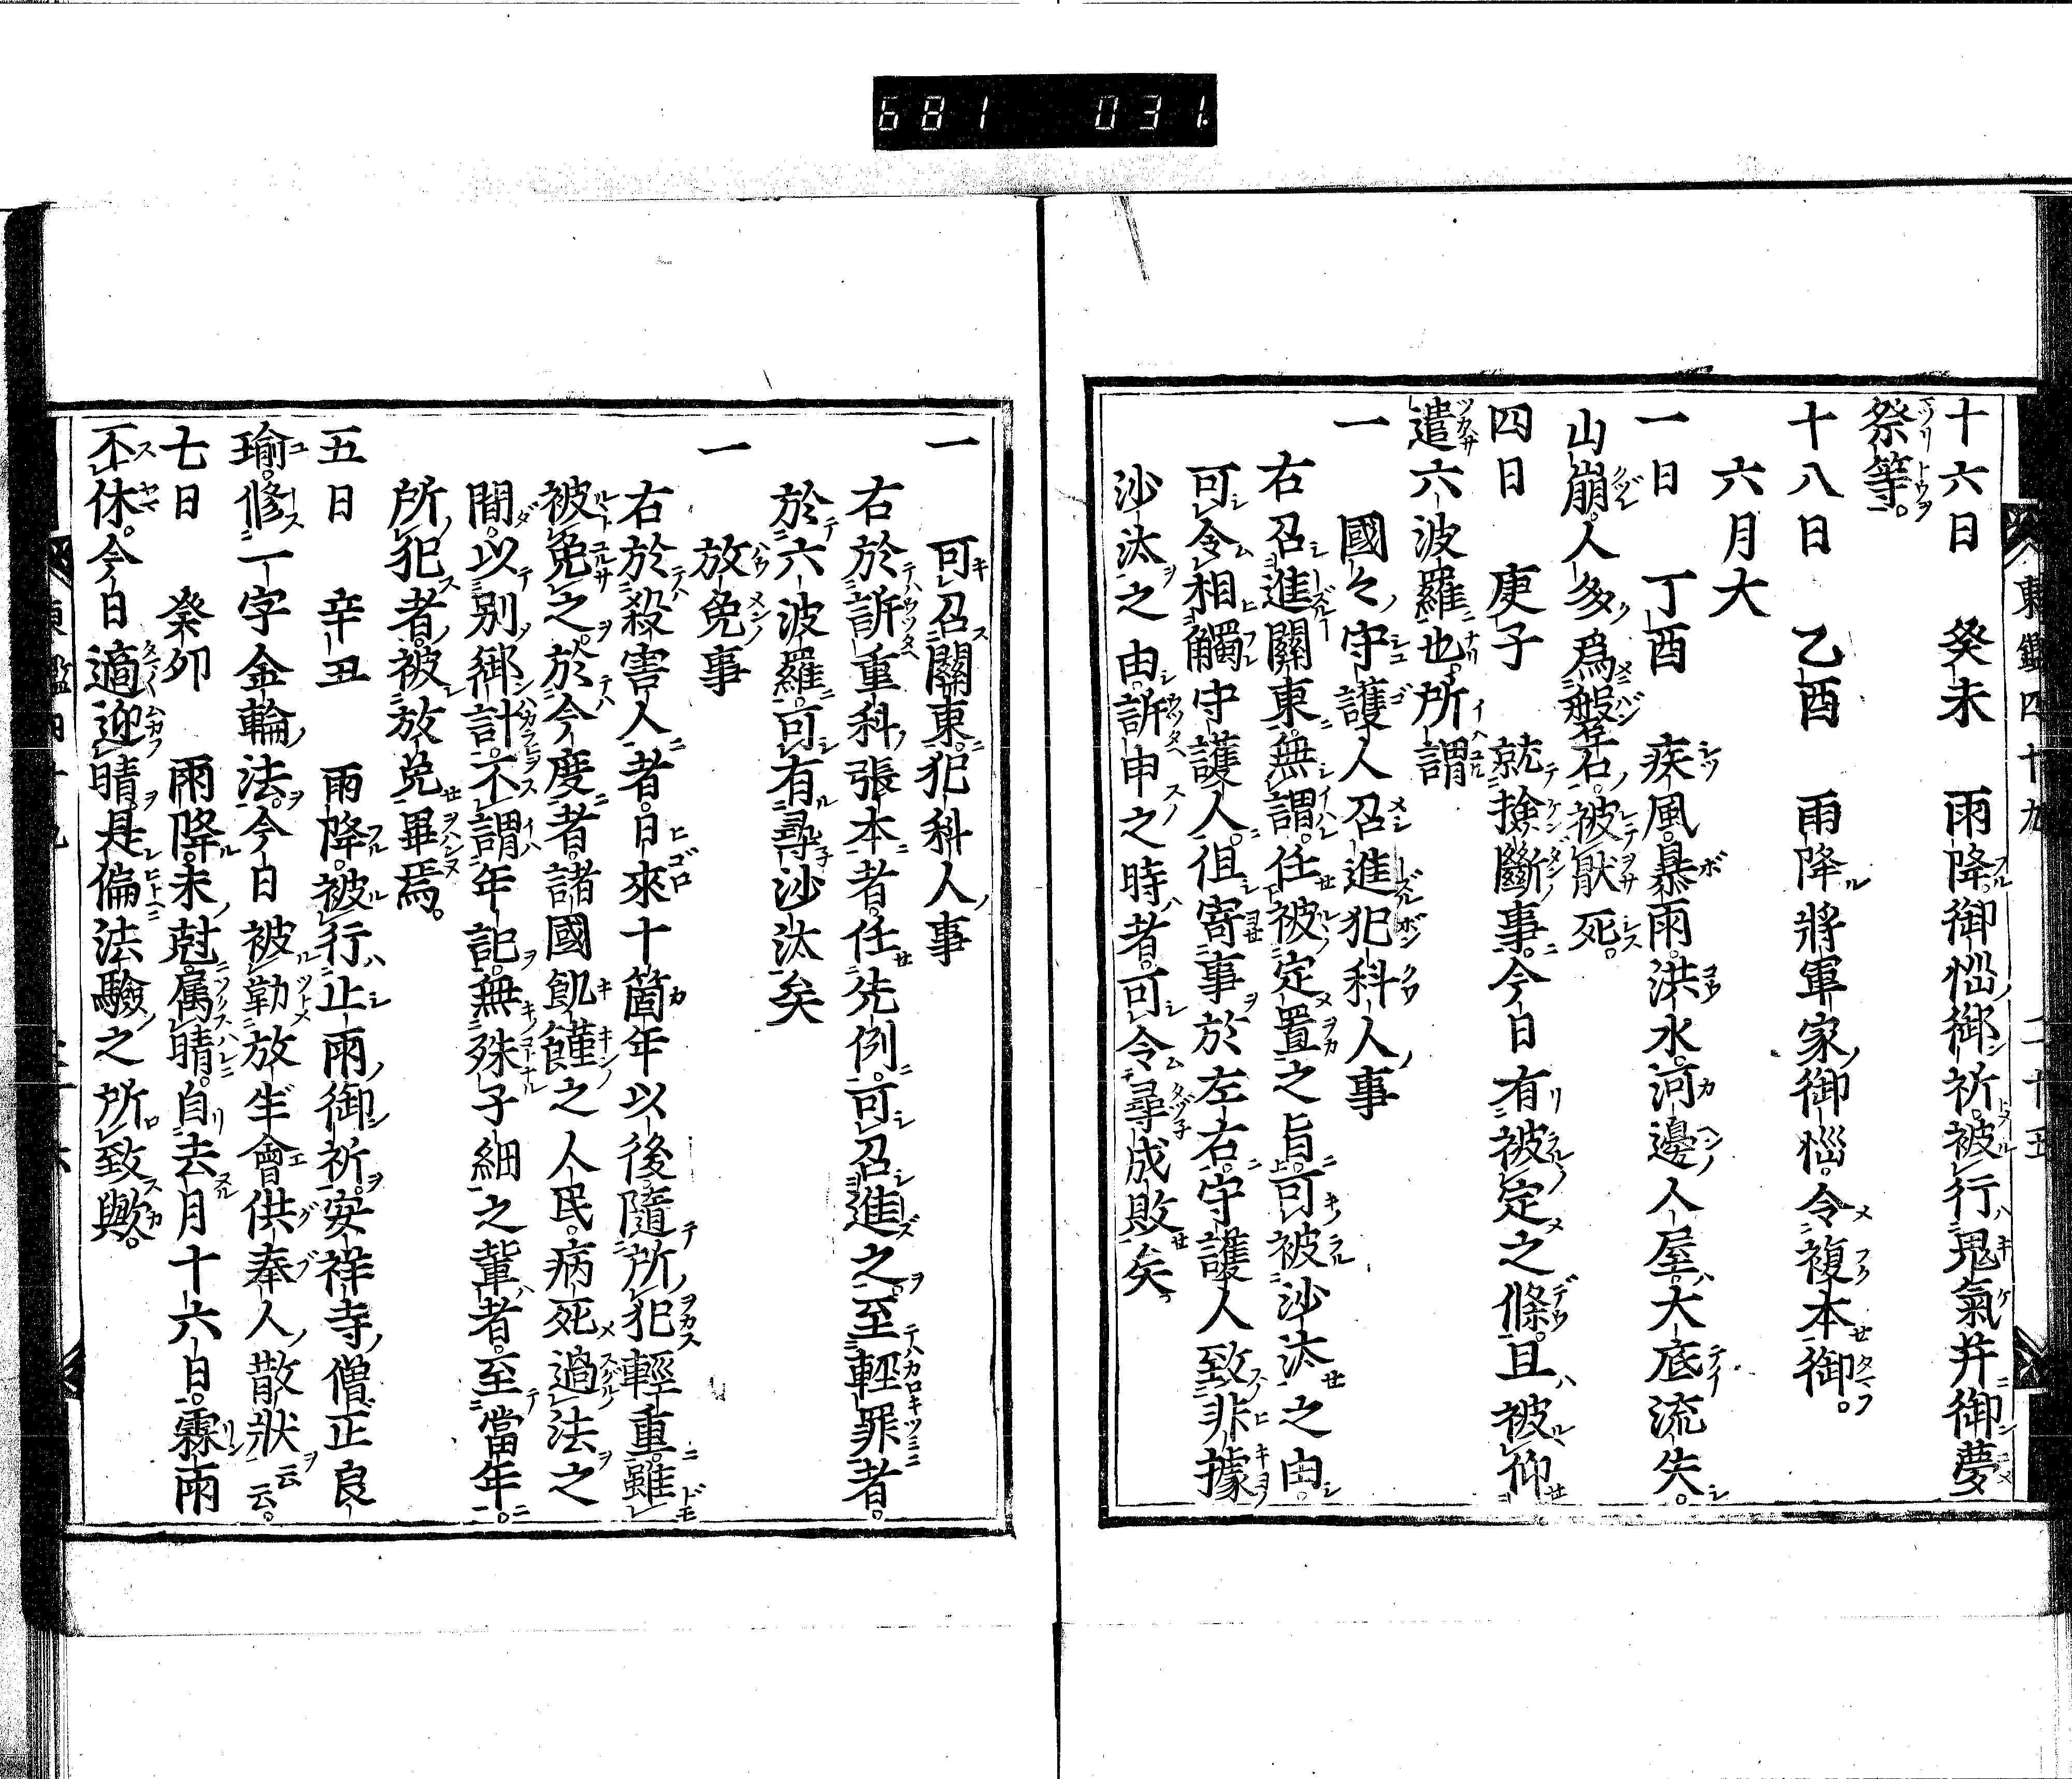 681 031.
十六日　癸未　雨降。御惱御祈。被行鬼氣幷御夢
祭等。
十八日　乙酉　雨降將軍家御惱。令複本御。
六月大
一日　丁酉　疾風暴雨。洪水。河邊人屋。大底流失。
山崩。人多爲磐石被壓死。
四日　庚子　就撿斷事。今日有被定之條。且被仰
遣六波羅也。所謂
一　國々守護人召進犯科人事
右召進關東。無謂。任被定置之旨。可被沙汰之由。
可令相觸守護人。但寄事於左右。守護人致非據
沙汰之由。訴申之時者。可令尋成敗矣。
一　可召關東。犯科人事
右於訴重科張本者。任先例。可召進之。至輕罪者。
於六波羅。可有尋沙汰矣
一　放免事
右於殺害人者。日來十箇年以後。隨所犯輕重。雖
被免之。於今度者。諸國飢饉之人民。病死過法之
間。以別御計。不謂年記。無殊子細之輩者。至當年。
所犯者。被放免畢焉。
五日　辛丑　雨降。被行止雨御祈。安祥寺僧正良
瑜。修一字金輪法。今日被勒放生會供奉人散狀云云。
七日　癸卯　雨降。未尅屬晴。自去月十六日。霖雨
不休。今日適迎晴。是偏法驗之所致歟。
東鑑四十九　二十五